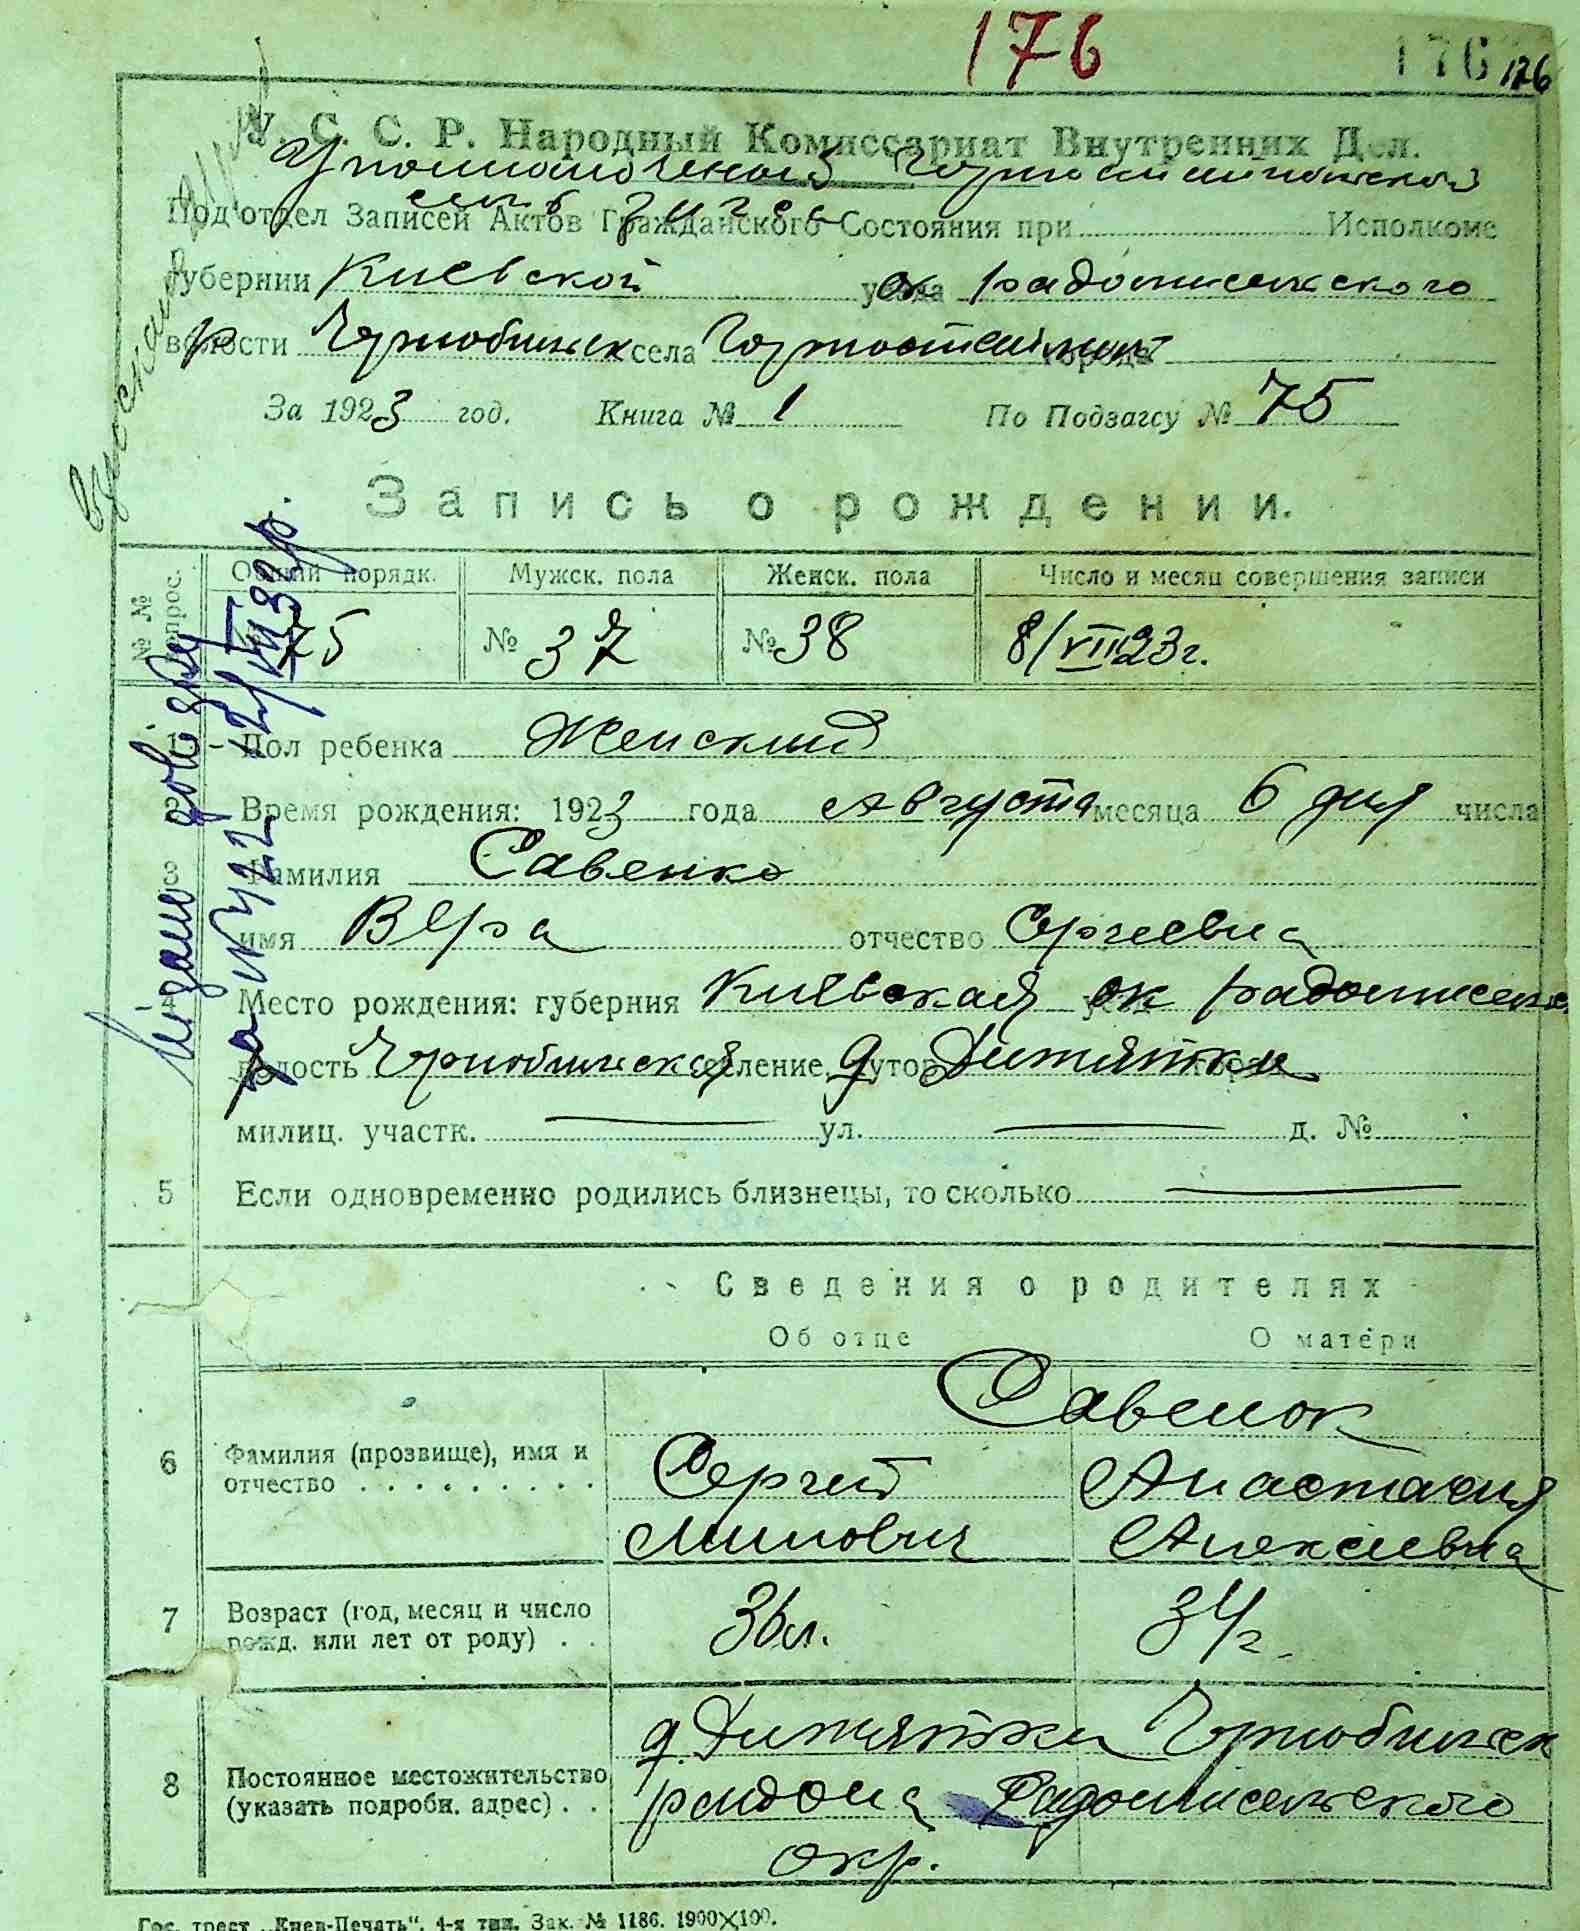 176
176 126
У. С. С. Р. Народный Комиссариат Внутренних Дел.
Под'отдел Записей Актов Гражданского Состояния при Исполкоме
Губернии Киевской уезда ок радомисельского
волости р Чернобыльск села Горностайпит города
За 1923 год. Книга № 1 По Подзагсу № 75
Запись о рождении.
№ № вопрос.
Общий порядк. Мужск. пола Женск. пола Число и месяц совершения записи
75 № 37 № 38 8/VIII 23 г.
1 Пол ребенка Женский
2 Время рождения: 1923 года Августа месяца 6 дня числа
3 Фамилия Савенко
имя Вера отчество Сергеевна
4 Место рождения: губерния Киевская ок радомисельск
волость Чернобыльская селение, хутор д Дитятки
милиц. участк. ул. д. №
5 Если одновременно родились близнецы, то сколько
Сведения о родителях
Об отце О матери
Савенок
6 Фамилия (прозвище), имя и отчество
Сергей Анастасия
Минович Алексеевна
7 Возраст (год, месяц и число рожд. или лет от роду)
36 л. 34 г.
8 Постоянное местожительство (указать подробн. адрес)
д. Дитятки Чернобыльск
района Радомисельского
окр.
Видано довідку
за № 422 2/VIII 39 р.
Гос. трест „Киев-Печать“. 4-я тип. Зак. № 1186. 1900×100.